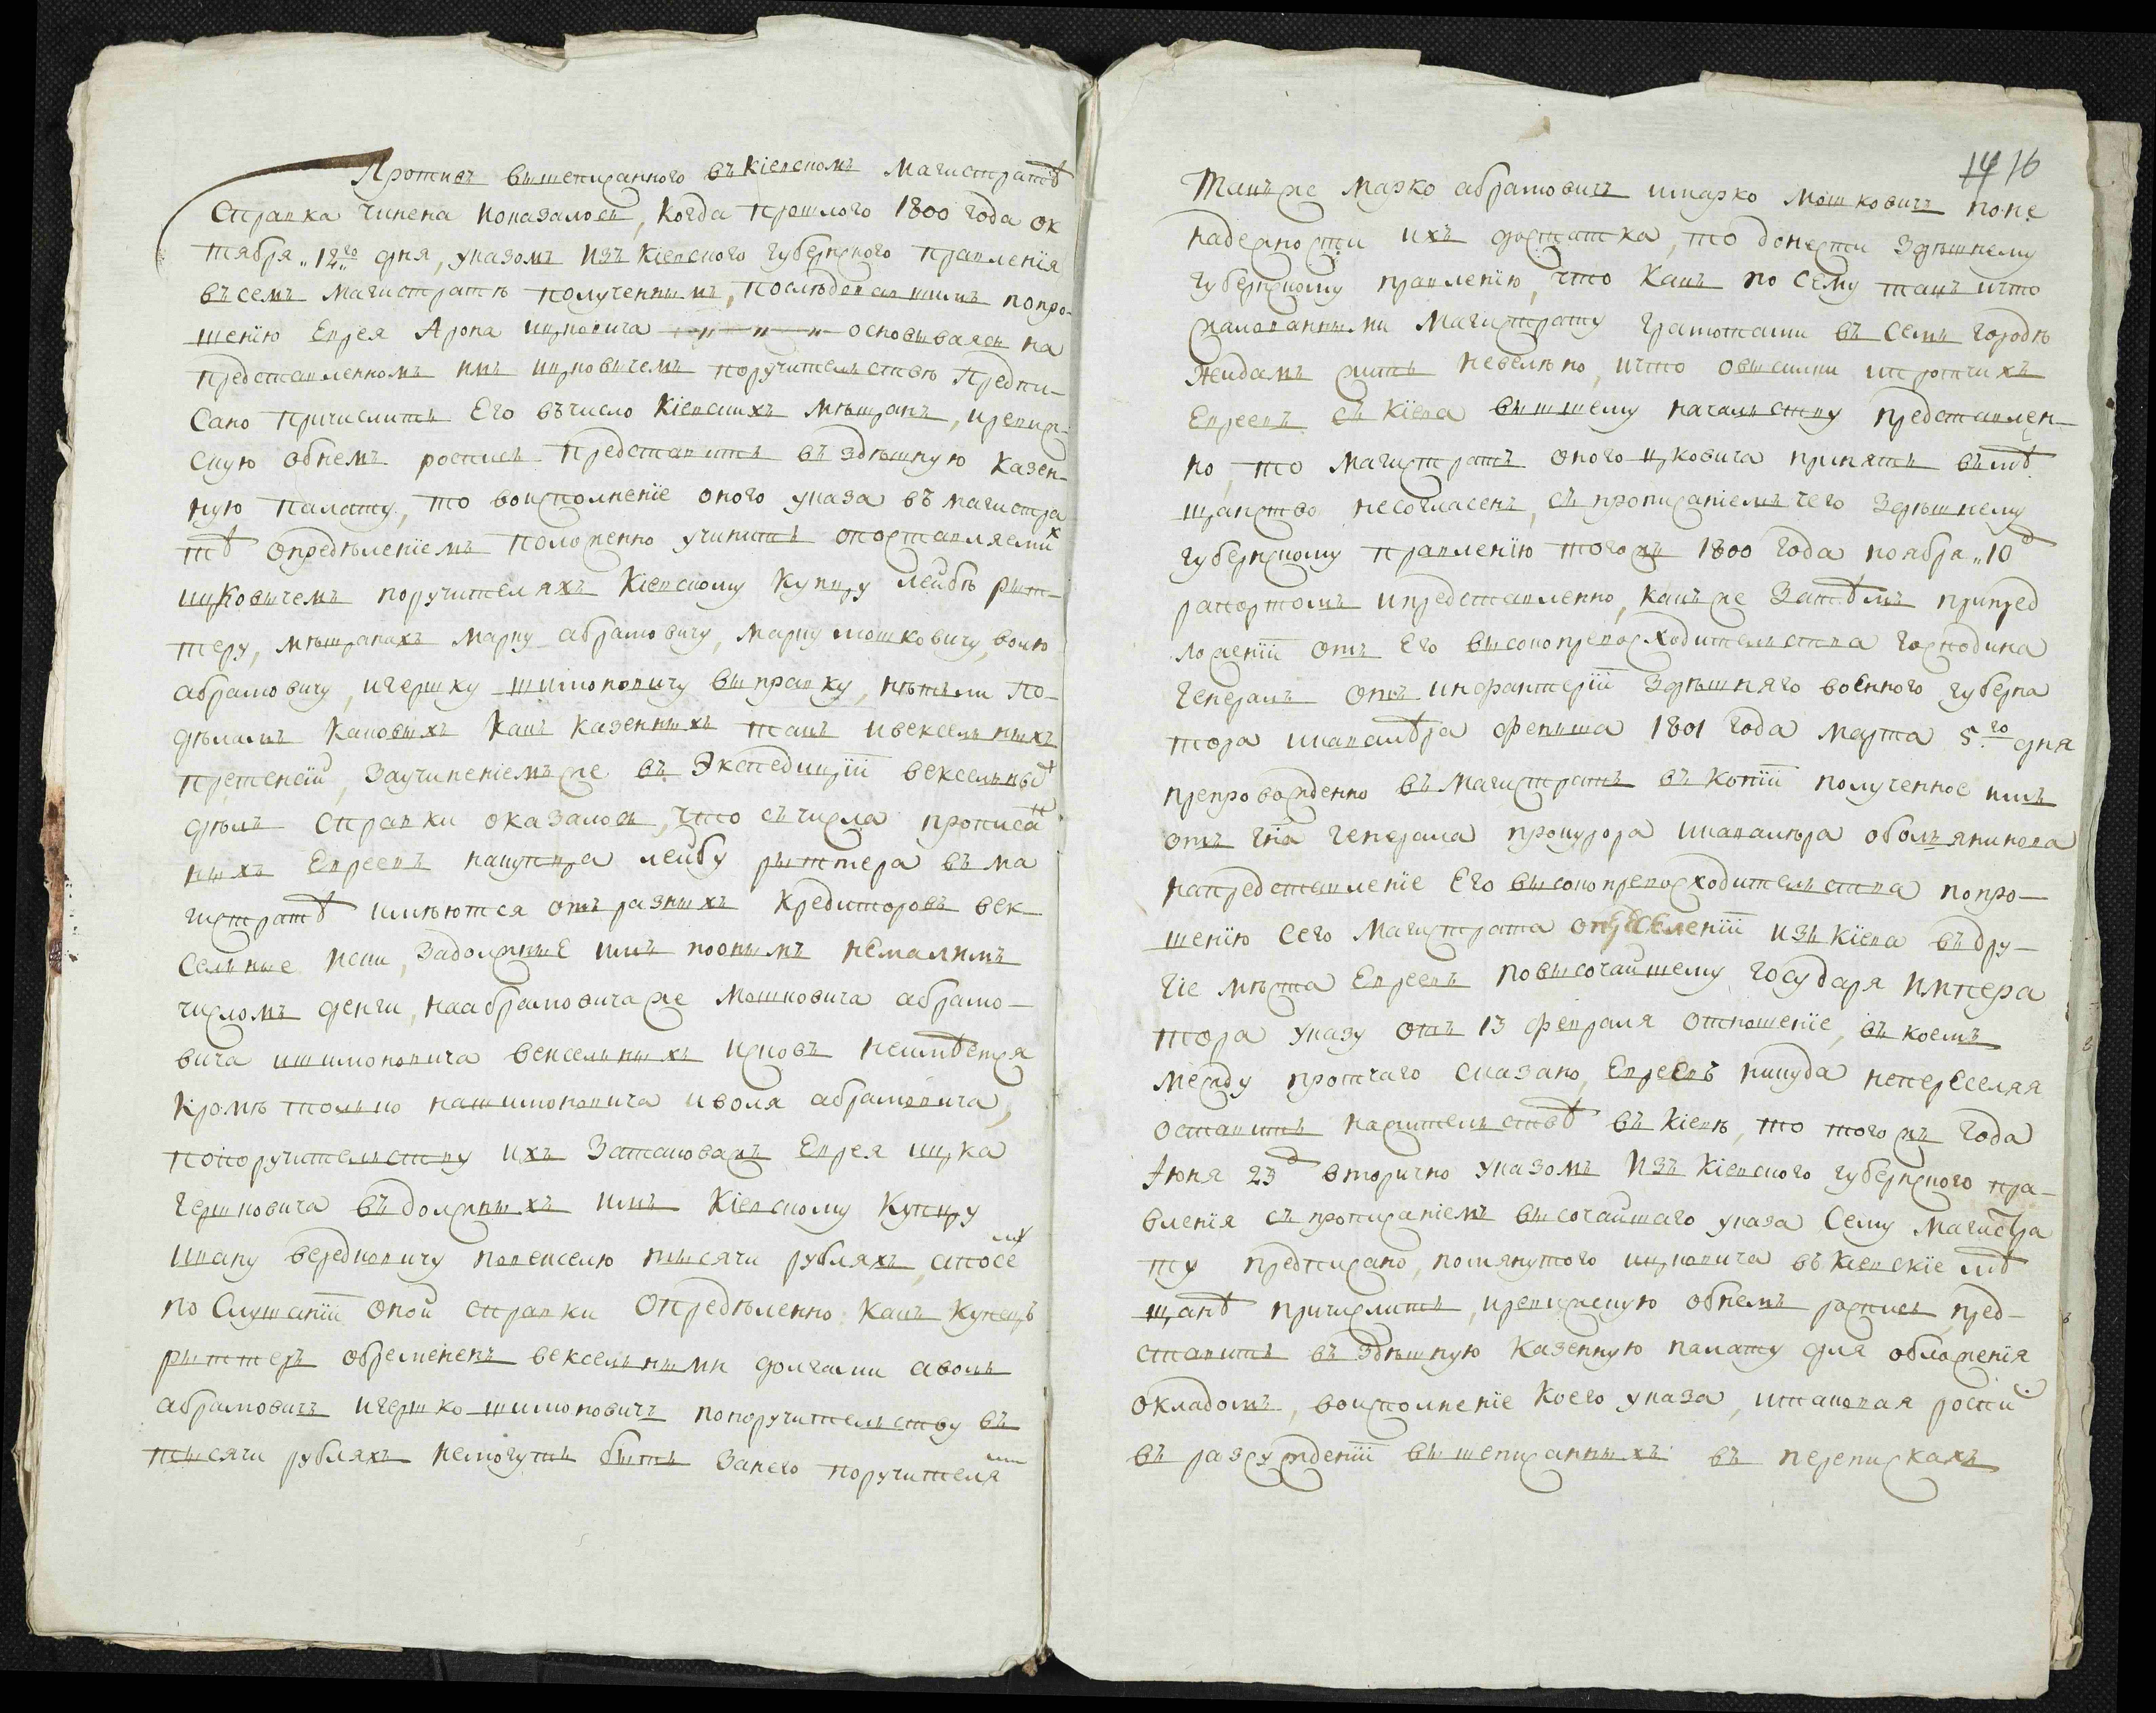 Противъ вышеписанного въ Кіевскомъ Магистратѣ
Справка чинена показалось, когда прошлого 1800 года ок
тября „12го дня, указомъ изъ Кіевского губернского правленія
въ семъ Магистратѣ полученнымъ, последовавшимъ по про-
шенію Еврея Арона Ицковича основываясь на
представленномъ имъ Ицковичемъ поручительствѣ предпи-
сано причислить Его въ число Кіевскихъ мѣщанъ, и ревиж-
скую обнемъ роспись представить въ здѣшную казен-
ную палату, то воисполненіе оного указа въ магистра
тѣ опредѣленіемъ положенно учинить опоставляемых
Ицковичемъ поручителяхъ Кіевскому купцу Лейбѣ Рыт-
теру, мѣщанахъ Марку Абрамовичу, Марку Мошковичу, Волю
Абрамовичу, и Гершку Шимоновичу выправку, нѣтъли по-
дѣламъ каковыхъ какъ казенныхъ такъ и вексельныхъ
претенсій, за учиненіемъ же въ Экспедиціи вексельныхъ
дѣлъ справки оказалось, что съ числа прописан
ныхъ Евреевъ накупца Лейбу Рыттера въ ма
гистратѣ имѣются отъ разныхъ кредиторовъ век-
сельные иски, задолжные имъ пооным немалимъ
числомъ денги, на Абрамовича же Мошковича Абрамо-
вича и Шимоновича вексельныхъ исковъ неимѣется
кромѣ только на Шимоновича и Воля Абрамовича,
по поручительству ихъ затаковажъ Еврея Ицка
Гершковича въ должныхъ имъ Кіевскому купцу
Ивану Середковичу по векселю тысячи рубляхъ, а по се
му
по слушаніи оной справки Опредѣленно: какъ купецъ
Рыттеръ обремененъ вексельными долгами а Воль
Абрамовичъ и Гершко Шимоновичъ по поручительству въ
тысячи рубляхъ немогутъ быть за него поручителя
ми
14 16
Такъже Марко Абрамовичъ и Марко Мошковичъ по не
надежности ихъ достатка, то донести здѣшнему
губернскому правленію, что какъ по сему такъ и что
жалованными Магистрату грамотами въ семъ городѣ
Жидамъ жить невелѣно, и что о высилки и протчихъ
Евреевъ съ Кіева вышшему начальству представлен-
но, то магистратъ оного Ицковича принять въ мѣ
щанство несогласенъ, съ прописаніемъ чего здѣшнему
губернскому правленію того жъ 1800 года ноября „10д
рапортомъ и представленно, какъ же затѣмъ припред
ложеніи отъ Его высокопревосходительства господина
Генералъ отъ инфантеріи здѣшняго военного губерна
тора и кавалѣра Фенша 1801 года марта 5го дня
препровожденно въ магистратъ въ копіи полученное имъ
отъ гна генерала прокурора и кавалѣра Обольянинова
на представленіе Его высокопревосходительства по про-
шенію сего Магистрата о переселеніи изъ Кіева въ дру-
гіе мѣста Евреевъ по высочайшему государя Импера
тора указу отъ 13 февраля отношеніе, въ коемъ
между протчаго сказано, Евреевъ никуда непереселяя
оставить нажительствѣ въ Кіевѣ, то того жъ года
Іюня 23д вторично указомъ изъ Кіевского губернского пра-
вленія съ прописаніемъ высочайшаго указа сему магистра
ту предписано, помянутого Ицковича въ Кіевскіе мѣ
щанѣ причислить, и ревижскую обнемъ роспись, пред-
ставить въ здѣшную казенную палату для обложенія
окладомъ, воисполненіе коего указа, и таковая роспи
въ разсужденіи вышеписанныхъ въ перепискахъ